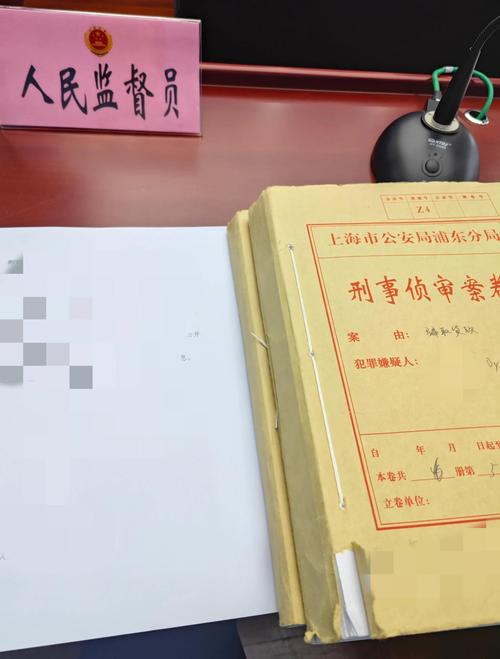 人民监督员
Z4
上海市公安局浦东分局
刑事侦审案卷
案 由： 骗取贷款
犯罪嫌疑人：
自 年 月 日起至
本卷共 册第 5
立卷单位：